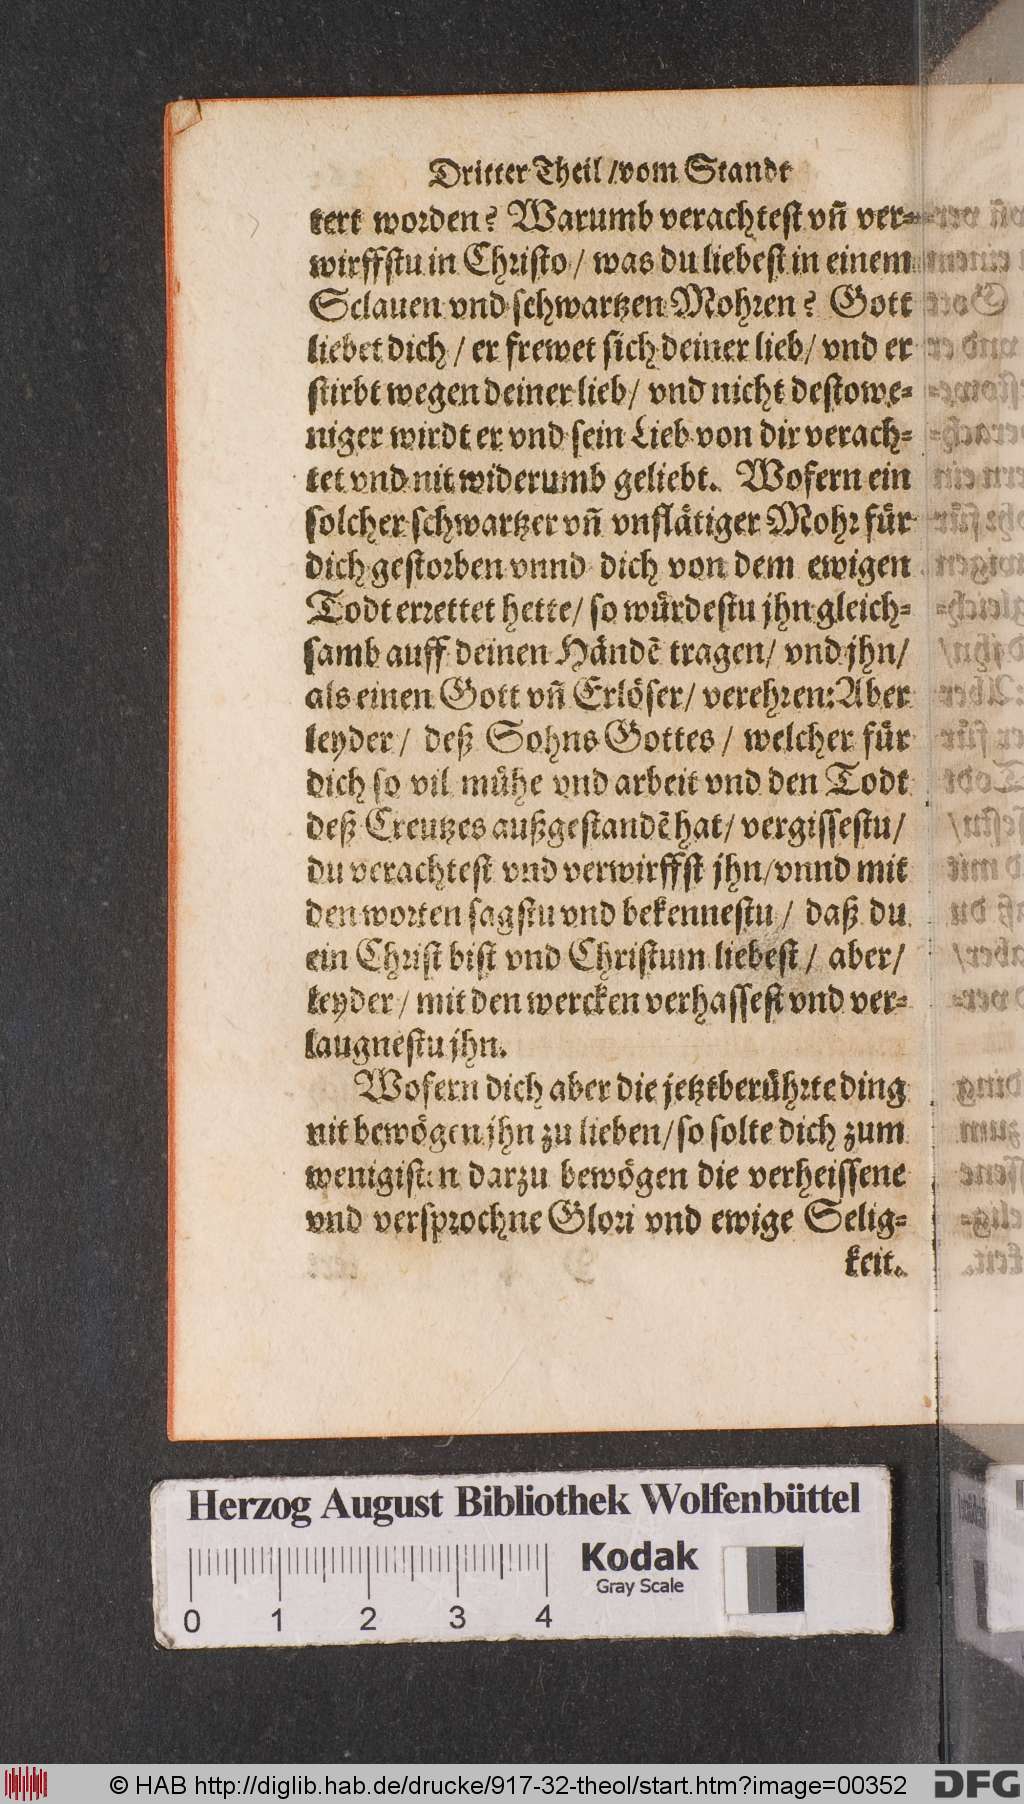 Dritter Theil /vom Standt
tert worden? Warumb verachtest vñ ver-
wirffstu in Christo / was du liebest in einem
Sclauen vnd schwartzen Mohren? Gott
liebet dich / er frewet sich deiner lieb/ vnd er
stirbt wegen deiner lieb/ vnd nicht destowe-
niger wirdt er vnd sein Lieb von dir verach-
tet vnd nit widerumb geliebt. Wofern ein
solcher schwartzer vñ vnflätiger Mohr für
dich gestorben vnnd dich von dem ewigen
Todt errettet hette/ so würdestu jhn gleich-
samb auff deinen Händẽ tragen/ vnd jhn/
als einen Gott vñ Erlöser/ verehren: Aber
leyder/ deß Sohns Gottes / welcher für
dich so vil mühe vnd arbeit vnd den Todt
deß Creutzes außgestandẽ hat/ vergissestu/
du verachtest vnd verwirffst jhn/vnnd mit
den worten sagstu vnd bekennestu / daß du
ein Christ bist vnd Christum liebest / aber/
leyder/ mit den wercken verhassest vnd ver-
laugnestu jhn.
Wofern dich aber die jetztberührte ding
nit bewögen jhn zu lieben/so solte dich zum
wenigisten darzu bewögen die verheissene
vnd versprochne Glori vnd ewige Selig-
keit.
Herzog August Bibliothek Wolfenbüttel
Kodak
Gray Scale
0 1 2 3 4
© HAB http://diglib.hab.de/drucke/917-32-theol/start.htm?image=00352
DFG